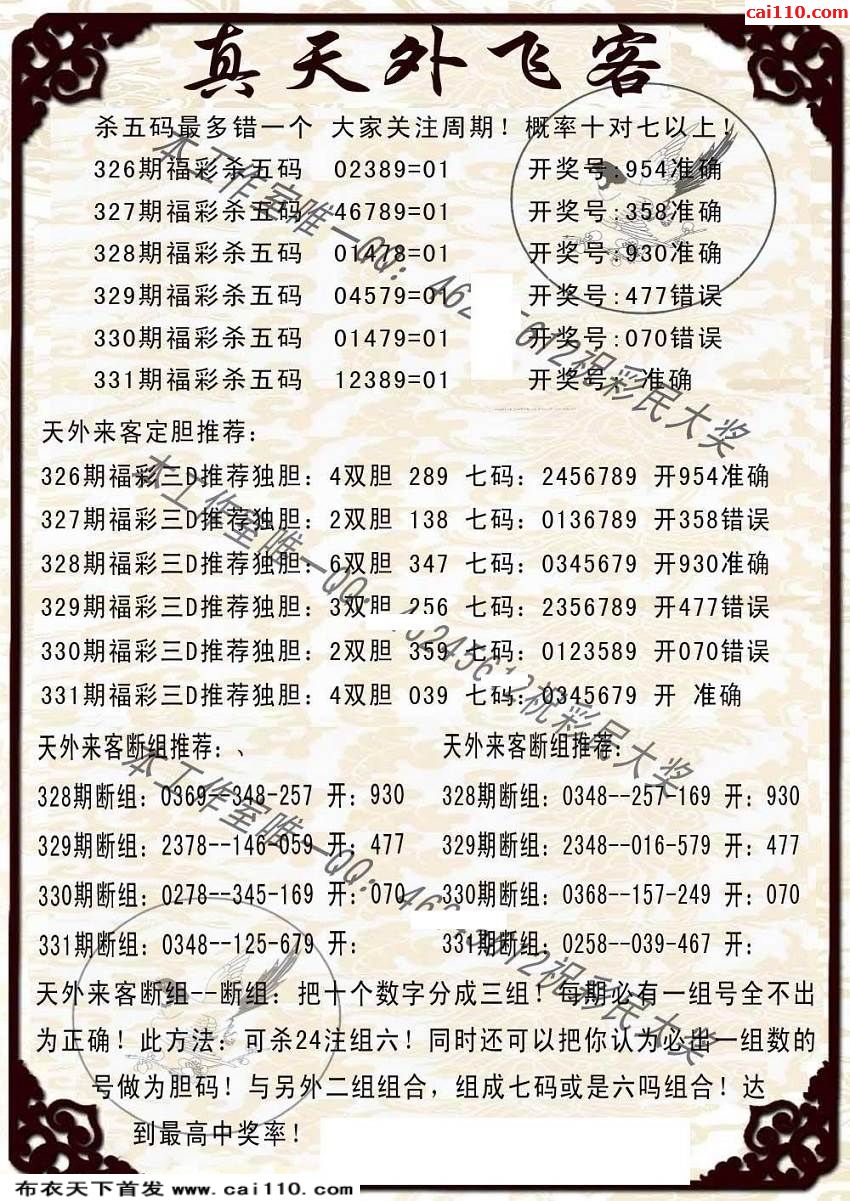 cai110.com
真天外飞客
杀五码最多错一个 大家关注周期！概率十对七以上！
326期福彩杀五码 02389=01 开奖号:954准确
327期福彩杀五码 46789=01 开奖号:358准确
328期福彩杀五码 01478=01 开奖号:930准确
329期福彩杀五码 04579=01 开奖号:477错误
330期福彩杀五码 01479=01 开奖号:070错误
331期福彩杀五码 12389=01 开奖号: 准确
天外来客定胆推荐：
326期福彩三D推荐独胆：4双胆 289 七码：2456789 开954准确
327期福彩三D推荐独胆：2双胆 138 七码：0136789 开358错误
328期福彩三D推荐独胆：6双胆 347 七码：0345679 开930准确
329期福彩三D推荐独胆：3双胆 256 七码：2356789 开477错误
330期福彩三D推荐独胆：2双胆 359 七码：0123589 开070错误
331期福彩三D推荐独胆：4双胆 039 七码：0345679 开 准确
天外来客断组推荐：、 天外来客断组推荐：
328期断组：0369--348-257 开：930 328期断组：0348--257-169 开：930
329期断组：2378--146-059 开：477 329期断组：2348--016-579 开：477
330期断组：0278--345-169 开：070 330期断组：0368--157-249 开：070
331期断组：0348--125-679 开： 331期断组：0258--039-467 开：
天外来客断组--断组：把十个数字分成三组！每期必有一组号全不出
为正确！此方法：可杀24注组六！同时还可以把你认为必出一组数的
号做为胆码！与另外二组组合，组成七码或是六吗组合！达
到最高中奖率！
本工作室唯一QQ：462 612祝彩民大奖
本工作室唯一QQ： 祝彩民大奖
本工作室唯一QQ：46 612祝彩民大奖
布衣天下首发 www.cai110.com